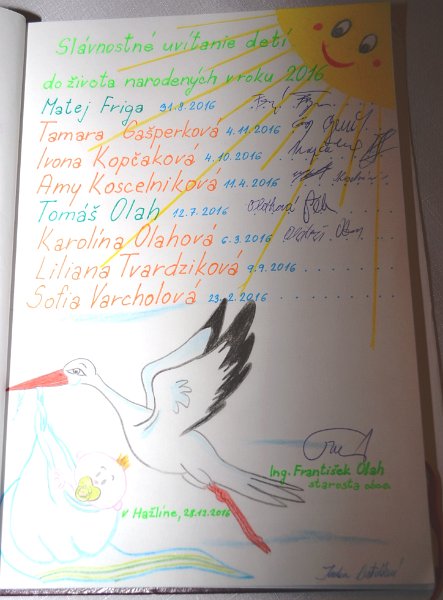 Slávnostné uvítanie detí
do života narodených v roku 2016
Matej Friga 31.8.2016
Tamara Gašperková 4.11.2016
Ivona Kopčaková 4.10.2016
Amy Koscelniková 11.4.2016
Tomáš Olah 12.7.2016 Olahová
Karolína Olahová 6.3.2016
Liliana Tvardziková 9.9.2016
Sofia Varcholová 23.2.2016
Ing. František Olah
starosta obce
v Hažlíne, 28.12.2016